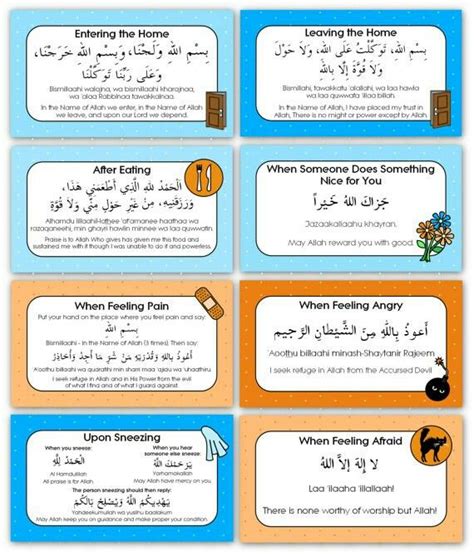 Entering the Home
بِسْمِ اللهِ وَلَجْنَا، وَبِسْمِ اللهِ خَرَجْنَا،
وَعَلَى رَبِّنَا تَوَكَّلْنَا
Bismillaahi walajna, wa bismillaahi kharajnaa,
wa 'alaa Rabbinaa tawakkalnaa.
In the Name of Allah we enter, in the Name of Allah
we leave, and upon our Lord we depend.
Leaving the Home
بِسْمِ اللهِ، تَوَكَّلْتُ عَلَى اللهِ، وَلَا حَوْلَ
وَلَا قُوَّةَ إِلَّا بِاللهِ
Bismillaahi, tawakkaltu 'alallahi, wa laa hawla
wa laa quwwata 'illaa billaah.
In the Name of Allah, I have placed my trust in
Allah, There is no might or power except by Allah.
After Eating
الْحَمْدُ لِلَّهِ الَّذِي أَطْعَمَنِي هَذَا،
وَرَزَقَنِيهِ، مِنْ غَيْرِ حَوْلٍ مِنِّي وَلَا قُوَّةٍ
Praise is to Allah Who gives has given me this food and
sustained me with it though I was unable to do it and powerless.
When Someone Does Something
Nice for You
جَزَاكَ اللهُ خَيْراً
Jazaakallaahu khayran.
May Allah reward you with good.
When Feeling Pain
Put your hand on the place where you feel pain and say:
بِسْمِ اللهِ
Bismillaahi - In the Name of Allah (3 times). Then say:
أَعُوذُ بِاللهِ وَقُدْرَتِهِ مِنْ شَرِّ مَا أَجِدُ وَأُحَاذِرُ
I seek refuge in Allah and in His Power from the evil
of what I find and of what I guard against.
When Feeling Angry
أَعُوذُ بِاللهِ مِنَ الشَّيْطَانِ الرَّجِيمِ
Aoothu billaahi minash-Shaytanir Rajeem
I seek refuge in Allah from the Accursed Devil
Upon Sneezing
When you sneeze:
الْحَمْدُ لِلَّهِ
Al Hamdulilah
All praise is for Allah
When you hear
someone else sneeze:
يَرْحَمُكَ اللهُ
Yarhamakallah
May Allah have mercy on you
The person sneezing should then reply:
يَهْدِيكُمُ اللهُ وَيُصْلِحُ بَالَكُمْ
Yahdeekumullah wa yuslihu baalakum
May Allah keep you on guidance and make proper your condition.
When Feeling Afraid
لا إِلهَ إِلاَّ اللهُ
Laa 'ilaaha 'illallaah!
There is none worthy of worship but Allah!